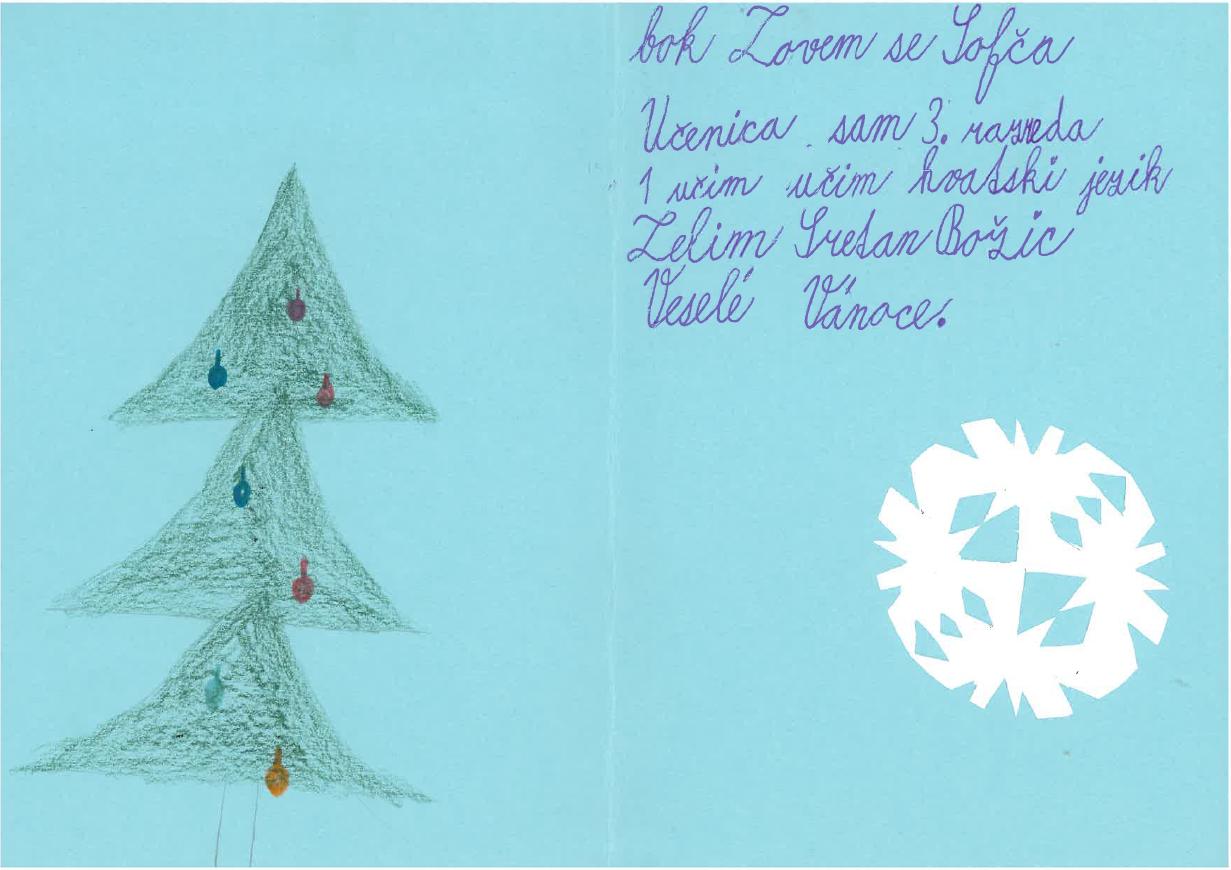 bok Zovem se Sofča
Učenica sam 3. razreda
1 učim učim hvatski jezik
Zelim Sretan Božic
Veselé Vánoce.